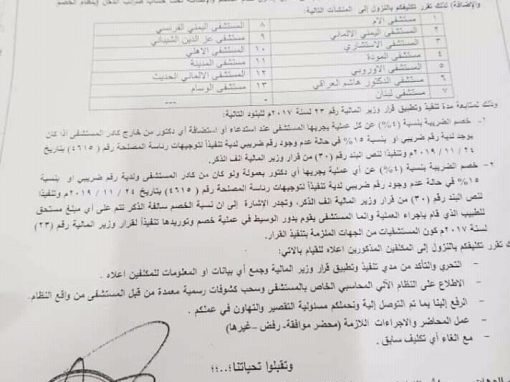 والإضافة) لذلك تقرر تكليفكم بالنزول إلى المنشآت التالية:
١ مستشفى الام ٨ المستشفى اليمني الفرنسي
٢ المستشفى اليمني الالماني ٩ مستشفى عز الدين الشيباني
٣ المستشفى الاستشاري ١٠ المستشفى الاهلي
٤ مستشفى المودة ١١ مستشفى المدينة
٥ المستشفى الأوروبي ١٢ المستشفى الالماني الحديث
٦ مستشفى الدكتور هاشم العراقي ١٣ مستشفى الوسام
٧ مستشفى لبنان -
وذلك لمتابعة مدة تنفيذ وتطبيق قرار وزير المالية رقم ٢٣ لسنة ٢٠١٧م للبنود التالية:
١- خصم الضريبة بنسبة (٤%) عن كل عملية يجريها المستشفى عند استدعاء أو استضافة أي دكتور من خارج كادر المستشفى اذا كان
يوجد لدية رقم ضريبي او بنسبة ١٥% في حالة عدم وجود رقم ضريبي لدية تنفيذاً لتوجيهات رئاسة المصلحة رقم (٤٦١٥) بتاريخ
٢٤ / ١١ / ٢٠١٩م وتنفيذا لنص البند رقم (٣٠) من قرار وزير المالية انف الذكر.
٢- خصم الضريبة بنسبة (٤%) عن أي عملية يجريها أي دكتور بعمولة ولو كان من كادر المستشفى ولدية رقم ضريبي او بنسبة
١٥% في حالة عدم وجود رقم ضريبي لدية تنفيذاً لتوجيهات رئاسة المصلحة رقم (٤٦١٥) بتاريخ ٢٤ / ١١ / ٢٠١٩م وتنفيذاً
لنص البند رقم (٣٠) من قرار وزير المالية انف الذكر، وتجدر الإشارة إلى ان نسبة الخصم سالفة الذكر تتم على أي مبلغ مستحق
للطبيب الذي قام بإجراء العملية وانما المستشفى يقوم بدور الوسيط في عملية خصم وتوريدها تنفيذاً لقرار وزير المالية رقم (٢٣)
لسنة ٢٠١٧م كون المستشفيات من الجهات الملزمة بتنفيذ القرار.
تقرر تكليفكم بالنزول إلى المكلفين المذكورين اعلاه للقيام بالاتي:
- التحري والتأكد من مدي تنفيذ وتطبيق قرار وزير المالية وجمع أي بيانات او المعلومات للمكلفين اعلاه.
- الاطلاع على النظام الآلي المحاسبي الخاص بالمستشفى وسحب كشوفات رسمية معمدة من قبل المستشفى من واقع النظام.
- الرفع إلينا بما تم التوصل إلية ونحملكم مسئولية التقصير والتهاون في عملكم.
- عمل المحاضر والاجراءات اللازمة (محضر موافقة- رفض –غيرها)
- مع الغاء أي تكليف سابق.
وتقبلوا تحياتنا،،،